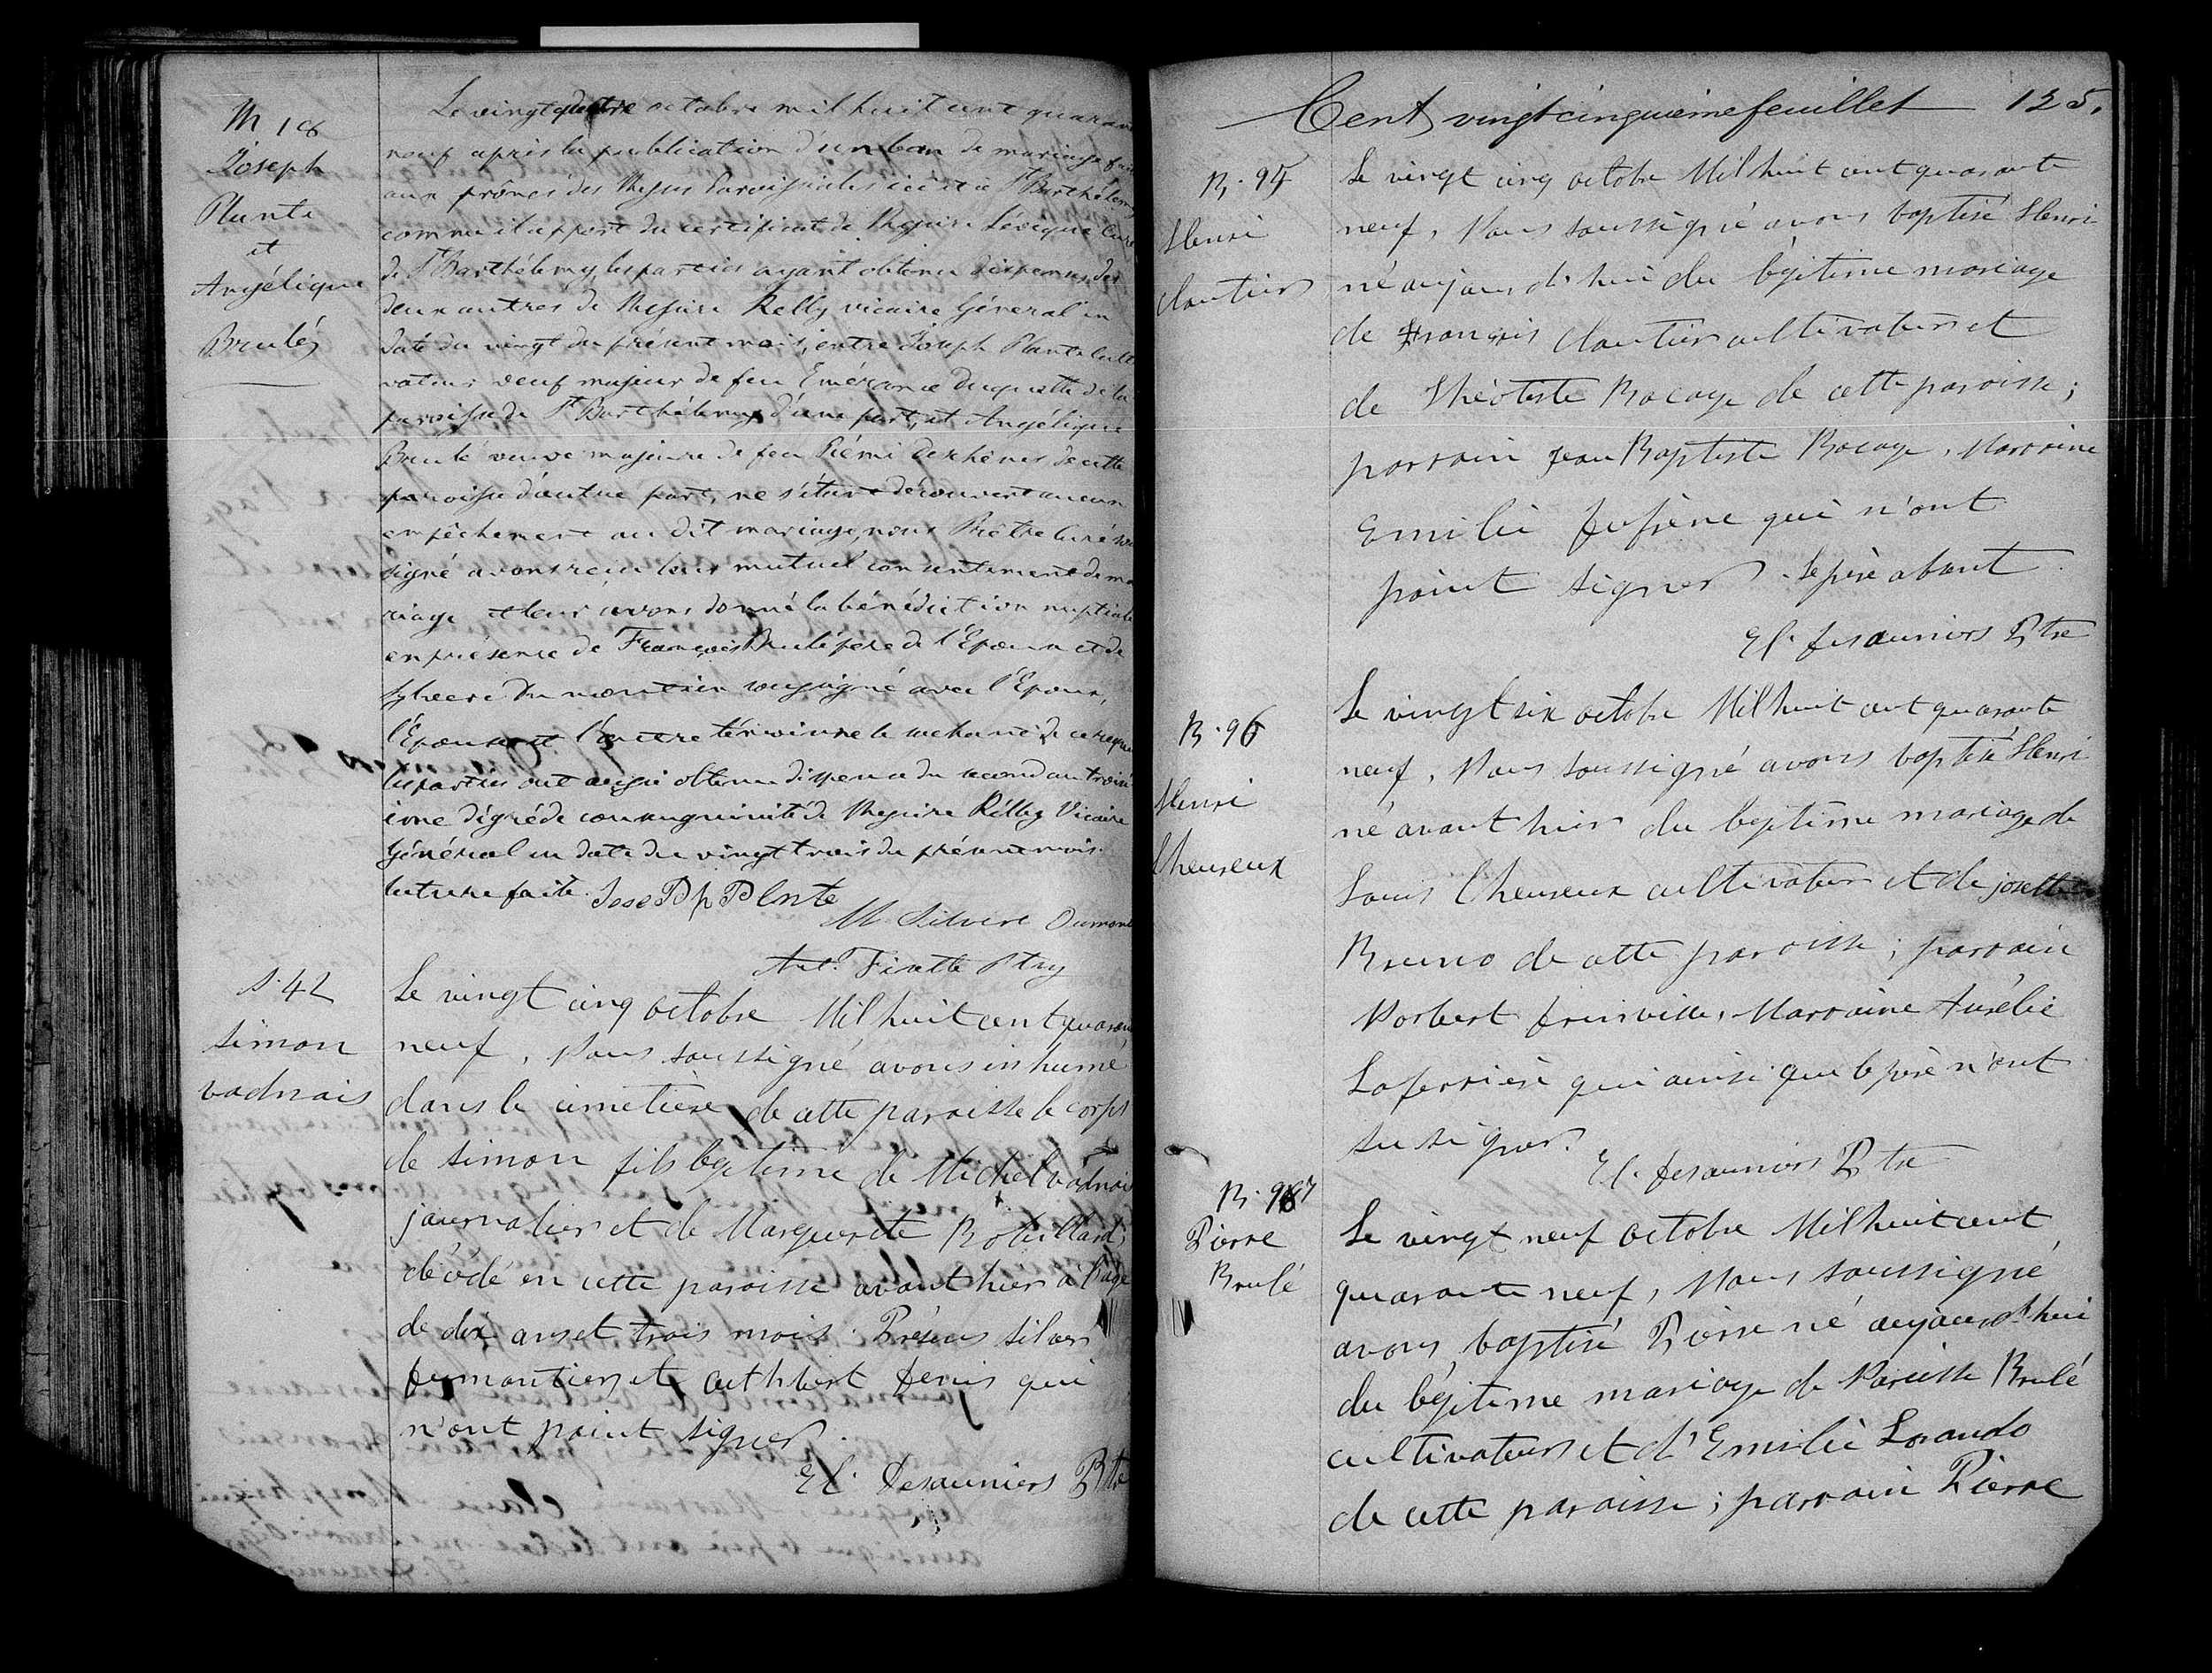 M 18
Joseph
Plante
et
Angélique
Brulé
Le vingt quatre octobre mil huit cent quaran
neuf après la publication d'un ban de mariage
aux prônes des Messes Paroissiales ici et à St Barthélemy
comme il appert du certificat de Messire Lévêque Curé
de St Barthélemy, les parties ayant obtenu dispense des
deux autres de Messire Kelly vicaire Général en
date du vingt du présent mois, entre Joseph Plante Culti
vateur veuf majeur de feu Emérance Duquette de la
paroisse de St Barthélemy d'une part, et Angélique
Brulé veuve majeure de feu Rémi Deschênes de cette
paroisse d'autre part, ne s'étant découvert aucun
empêchement au dit mariage, nous Prêtre Curé sous
signé avons reçu leur mutuel consentement de ma
riage et leur avons donné la bénédiction nuptiale
en présence de François Brulé père de l'Epouse et de
soussigné avec l'Epoux,
l'Epouse et l'autre témoin ne le sachant de ce requis
les parties ont aussi obtenu dispense du second au troisi
ème dégré de consanguinité de Messire Kelly Vicaire
Général en date du vingt trois du présent mois.
lecture faite. JosePh Plnte
M Silvere Dumont
Ant. Fisette Ptre
S. 42
Simon
vadnais
Le vingt cinq octobre Mil huit cent quaran
neuf, Nous soussigné avons inhumé
dans le cimetière de cette paroisse le corps
de Simon fils légitime de Michel vadnais
journalier et de Marguerite Robillard;
décédé en cette paroisse avant hier à l'age
de dix ans et trois mois. Présens Silver
Dumontier et Cuthbert Denis qui
n'ont point signer.
El. Desauniers Ptre
Cent vingt cinquieme feuillet 125.
B. 95
Henri
Cloutier
Le vingt cinq octobre Mil huit cent quarante
neuf, Nous soussigné avons baptisé Henri
né aujourd'hui du légitime mariage
de François Cloutier cultivateur et
de Théotiste Bocage de cette paroisse;
parrain Jean Baptiste Bocage, Marraine
Emilie Dufrêne qui n'ont
point signer. Le père absent
El. Desauniers Ptre
B. 96
Henri
Lheureux
Le vingt six octobre Mil huit cent quarante
neuf, Nous soussigné avons baptisé Henri
né avant hier du légitime mariage de
Louis Lheureux cultivateur et de josette
Bruno de cette paroisse; parrain
Norbert Drinville, Marraine Aurélie
Laferrière qui ainsi que le père n'ont
su signer.
El. Desauniers Ptre
B. 97
Pierre
Brulé
Le vingt neuf octobre Mil huit cent
quarante neuf, Nous soussigné
avons baptisé Pierre né aujourd'hui
du légitime mariage de Narcisse Brulé
cultivateur et d'Emilie Lorando
de cette paroisse; parrain Pierre